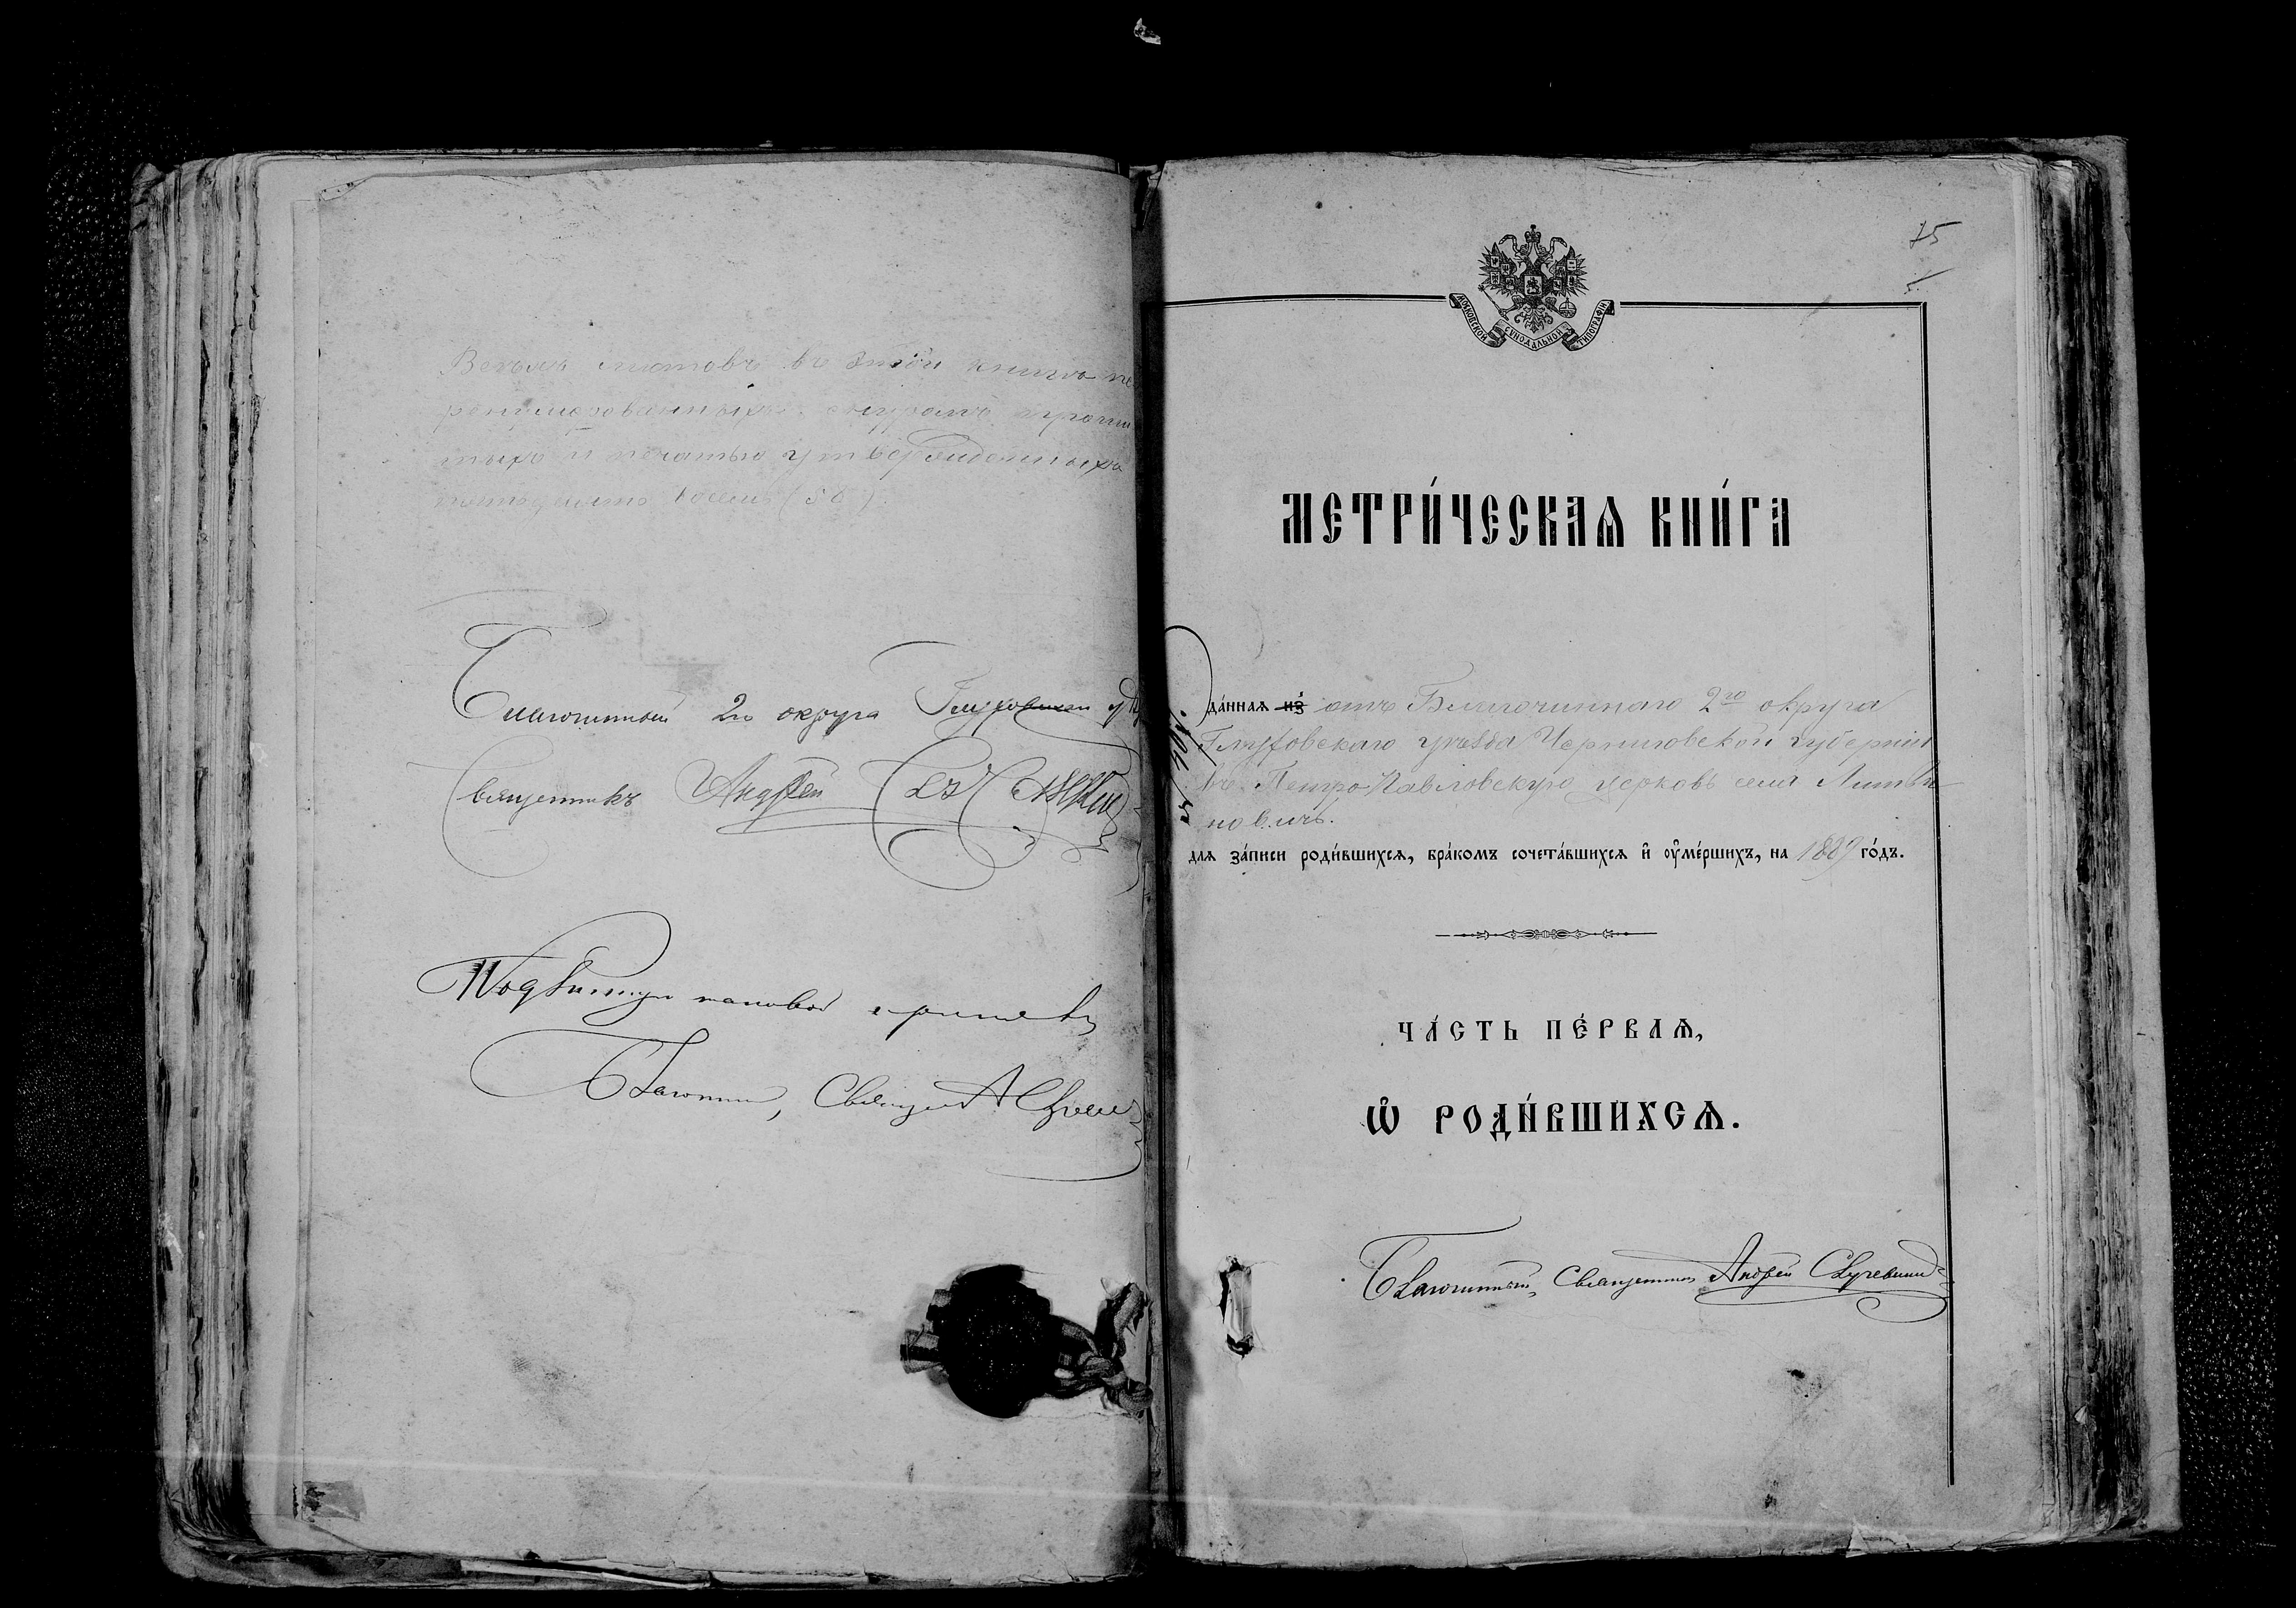 Всехъ листовъ въ этой книге пе
ренумерованныхъ, шнуромъ прошну
тыхъ и печатью утвержденныхъ
пятьдесятъ восемь (58).
Благочинный 2го округа Глуховскаго
Священникъ Андрей
Благочинный, Священникъ А
75
МОСКОВСКОЙ СѴНОДАЛЬНОЙ ТИПОГРАФІИ
МЕТРИ́ЧЕСКАѦ КНИ́ГА
да́ннаѧ из̾ отъ Благочиннаго 2го округа
Глуховскаго уѣзда Черниговской губерніи
въ Петро-Павловскую церковь села Литви-
новичъ.
длѧ за́писи роди́вшихсѧ, бра́комъ сочета́вшихсѧ и҆ ᲂу҆ме́ршихъ, на 1889 го́дъ.
ЧА́СТЬ ПЕ́РВАѦ,
Ѽ РОДИ́ВШИХСѦ.
Благочинный, Священникъ Андрей